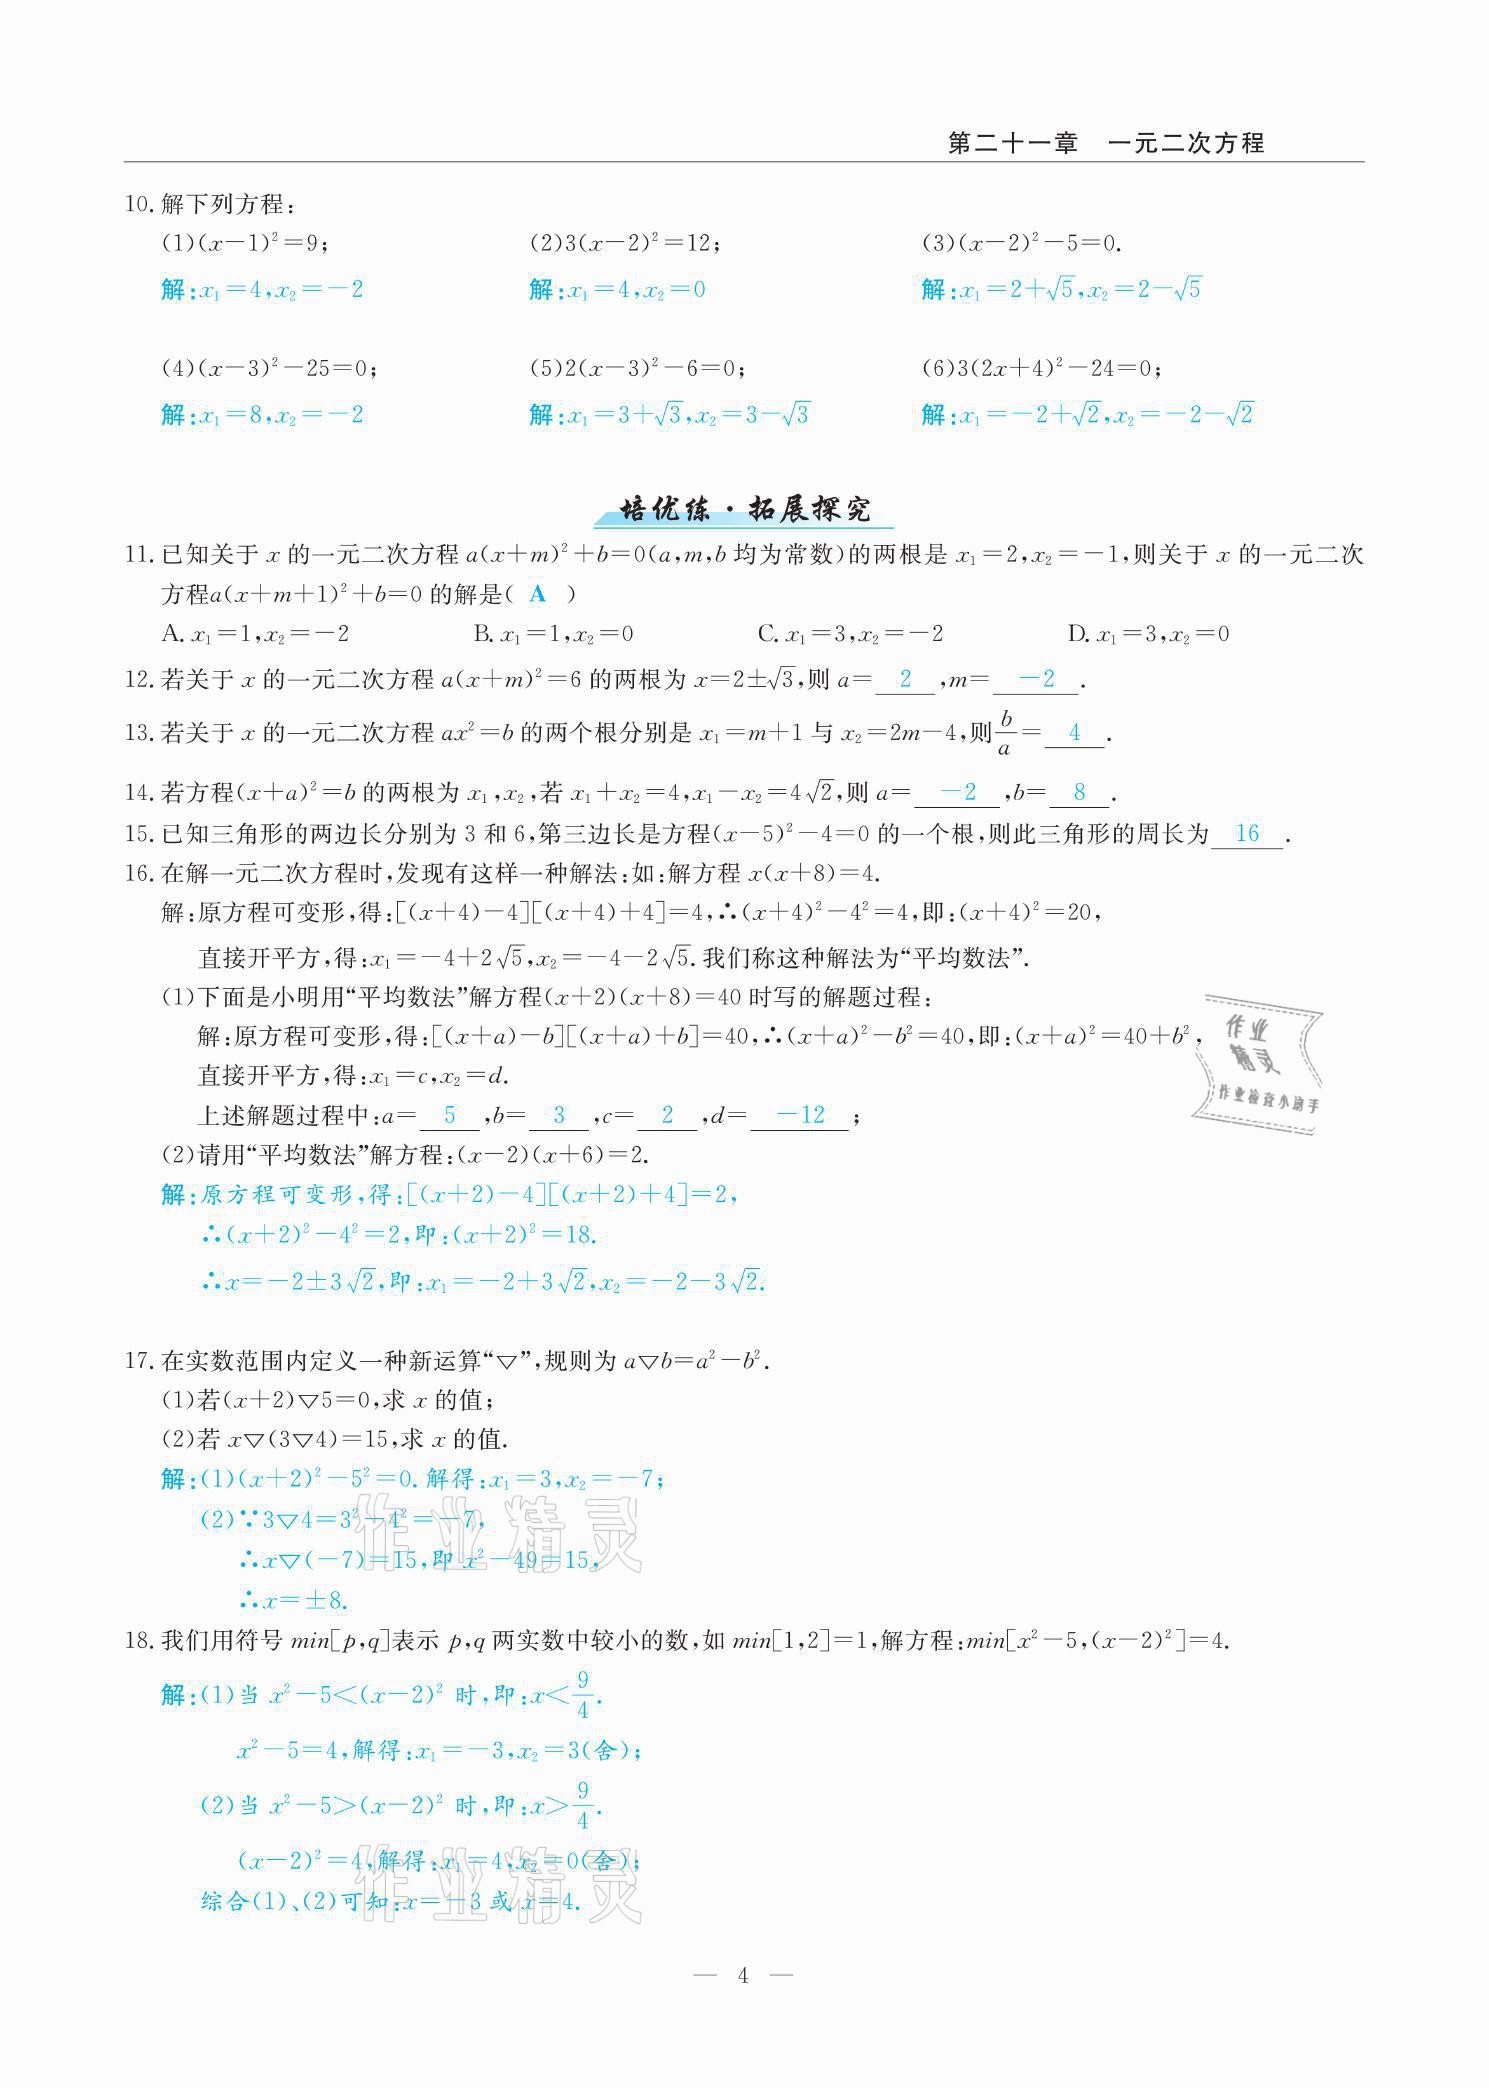 第二十一章 一元二次方程
10. 解下列方程:
(1)(x－1)²＝9; (2)3(x－2)²＝12; (3)(x－2)²－5＝0.
解:x₁＝4,x₂＝－2 解:x₁＝4,x₂＝0 解:x₁＝2＋√5,x₂＝2－√5
(4)(x－3)²－25＝0; (5)2(x－3)²－6＝0; (6)3(2x＋4)²－24＝0;
解:x₁＝8,x₂＝－2 解:x₁＝3＋√3,x₂＝3－√3 解:x₁＝－2＋√2,x₂＝－2－√2
培优练·拓展探究
11. 已知关于 x 的一元二次方程 a(x＋m)²＋b＝0(a,m,b 均为常数)的两根是 x₁＝2,x₂＝－1,则关于 x 的一元二次
方程a(x＋m＋1)²＋b＝0 的解是( A )
A. x₁＝1,x₂＝－2 B. x₁＝1,x₂＝0 C. x₁＝3,x₂＝－2 D. x₁＝3,x₂＝0
12. 若关于 x 的一元二次方程 a(x＋m)²＝6 的两根为 x＝2±√3,则 a＝ 2 ,m＝ －2 .
13. 若关于 x 的一元二次方程 ax²＝b 的两个根分别是 x₁＝m＋1 与 x₂＝2m－4,则b/a＝ 4 .
14. 若方程(x＋a)²＝b 的两根为 x₁,x₂,若 x₁＋x₂＝4,x₁－x₂＝4√2,则 a＝ －2 ,b＝ 8 .
15. 已知三角形的两边长分别为 3 和 6,第三边长是方程(x－5)²－4＝0 的一个根,则此三角形的周长为 16 .
16. 在解一元二次方程时,发现有这样一种解法:如:解方程 x(x＋8)＝4.
解:原方程可变形,得:[(x＋4)－4][(x＋4)＋4]＝4,∴(x＋4)²－4²＝4,即:(x＋4)²＝20,
直接开平方,得:x₁＝－4＋2√5,x₂＝－4－2√5. 我们称这种解法为“平均数法”.
(1)下面是小明用“平均数法”解方程(x＋2)(x＋8)＝40 时写的解题过程:
解:原方程可变形,得:[(x＋a)－b][(x＋a)＋b]＝40,∴(x＋a)²－b²＝40,即:(x＋a)²＝40＋b²,
直接开平方,得:x₁＝c,x₂＝d.
上述解题过程中:a＝ 5 ,b＝ 3 ,c＝ 2 ,d＝ －12 ;
(2)请用“平均数法”解方程:(x－2)(x＋6)＝2.
解:原方程可变形,得:[(x＋2)－4][(x＋2)＋4]＝2,
∴(x＋2)²－4²＝2,即:(x＋2)²＝18.
∴x＝－2±3√2,即:x₁＝－2＋3√2,x₂＝－2－3√2.
作业
精灵
作业检查小助手
17. 在实数范围内定义一种新运算“▽”,规则为 a▽b＝a²－b².
(1)若(x＋2)▽5＝0,求 x 的值;
(2)若 x▽(3▽4)＝15,求 x 的值.
解:(1)(x＋2)²－5²＝0. 解得:x₁＝3,x₂＝－7;
(2)∵3▽4＝3²－4²＝－7,
∴x▽(－7)＝15,即 x²－49＝15,
∴x＝±8.
作业精灵
18. 我们用符号 min[p,q]表示 p,q 两实数中较小的数,如 min[1,2]＝1,解方程:min[x²－5,(x－2)²]＝4.
解:(1)当 x²－5＜(x－2)² 时,即:x＜9/4.
x²－5＝4,解得:x₁＝－3,x₂＝3(舍);
(2)当 x²－5＞(x－2)² 时,即:x＞9/4.
(x－2)²＝4,解得:x₁＝4,x₂＝0(舍);
综合(1)、(2)可知:x＝－3 或 x＝4.
作业精灵
— 4 —